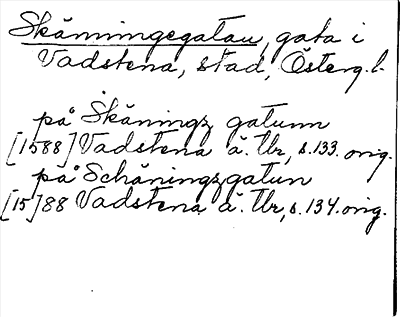 Skänningegatan, gata i
Vadstena, stad, Österg. l.
på Skäningz gatunn
[1588] Vadstena ä. tbr, s. 133. orig.
på Schäningzgatun
[15]88 Vadstena ä. tbr, s. 134. orig.